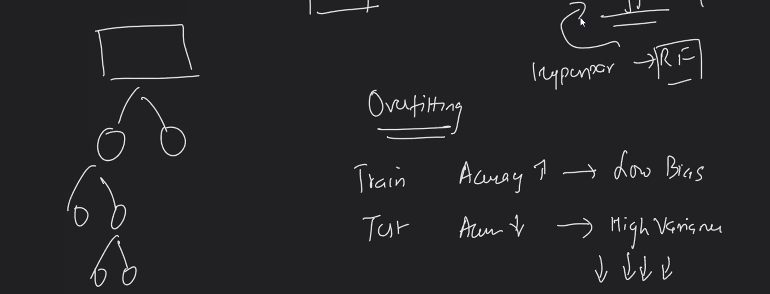 Hyperpar → RF
Overfitting
Train Accuracy ↑ → Low Bias
Test Accu ↓ → High Variance
↓ ↓ ↓ ↓